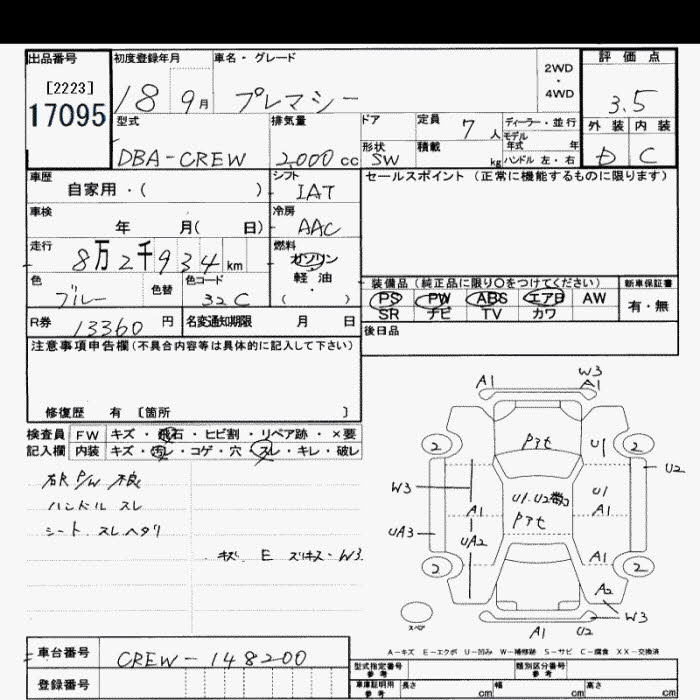 出品番号 初度登録年月 車名・グレード 2WD・4WD 評価点
[2223]
17095 18 9月 プレマシー 3.5
型式 排気量 ドア 定員 7人 ディーラー・並行 外装 内装
モデル年式 年
DBA-CREW 2,000cc 形状 SW 積載 kg ハンドル 左・右 D C
車歴 シフト セールスポイント(正常に機能するものに限ります)
自家用・( ) IAT
車検 冷房
年 月( 日) AAC
走行 燃料
8万2千934km ガソリン
色 色替 色コード 軽油 装備品(純正品に限り○をつけてください) 新車保証書
ブルー 32C ( ・ ) PS PW ABS エアB AW 有・無
SR ナビ TV カワ
R券 13360円 名変通知期限 月 日 後日品
注意事項申告欄(不具合内容等は具体的に記入して下さい)
修復歴 有 [箇所 ]
検査員 FW キズ・飛石・ヒビ割・リペア跡・×要
記入欄 内装 キズ・汚レ・コゲ・穴・スレ・キレ・破レ
右R P/W 不良
ハンドル スレ
シート スレヘタリ
キズ E スリキズ・W3
A1 W3
A1
2 Pアセ U1 2
U2
W3 U1.U2数コ U1
A1 Pアセ A1
UA3 UA2
2 A1 2
A2
スペア W3
A1 U2
A-キズ E-エクボ U-凹み W-補修跡 S-サビ C-腐食 XX-交換済
車台番号 CREW-148200
型式指定番号 参考 類別区分番号 参考
登録番号 車庫証明用 参考 長さ cm 幅 cm 高さ cm